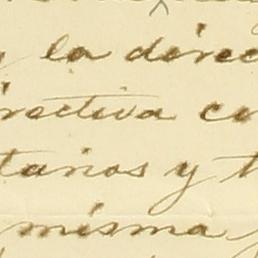 y la direc
irectiva co
tarios y t
misma